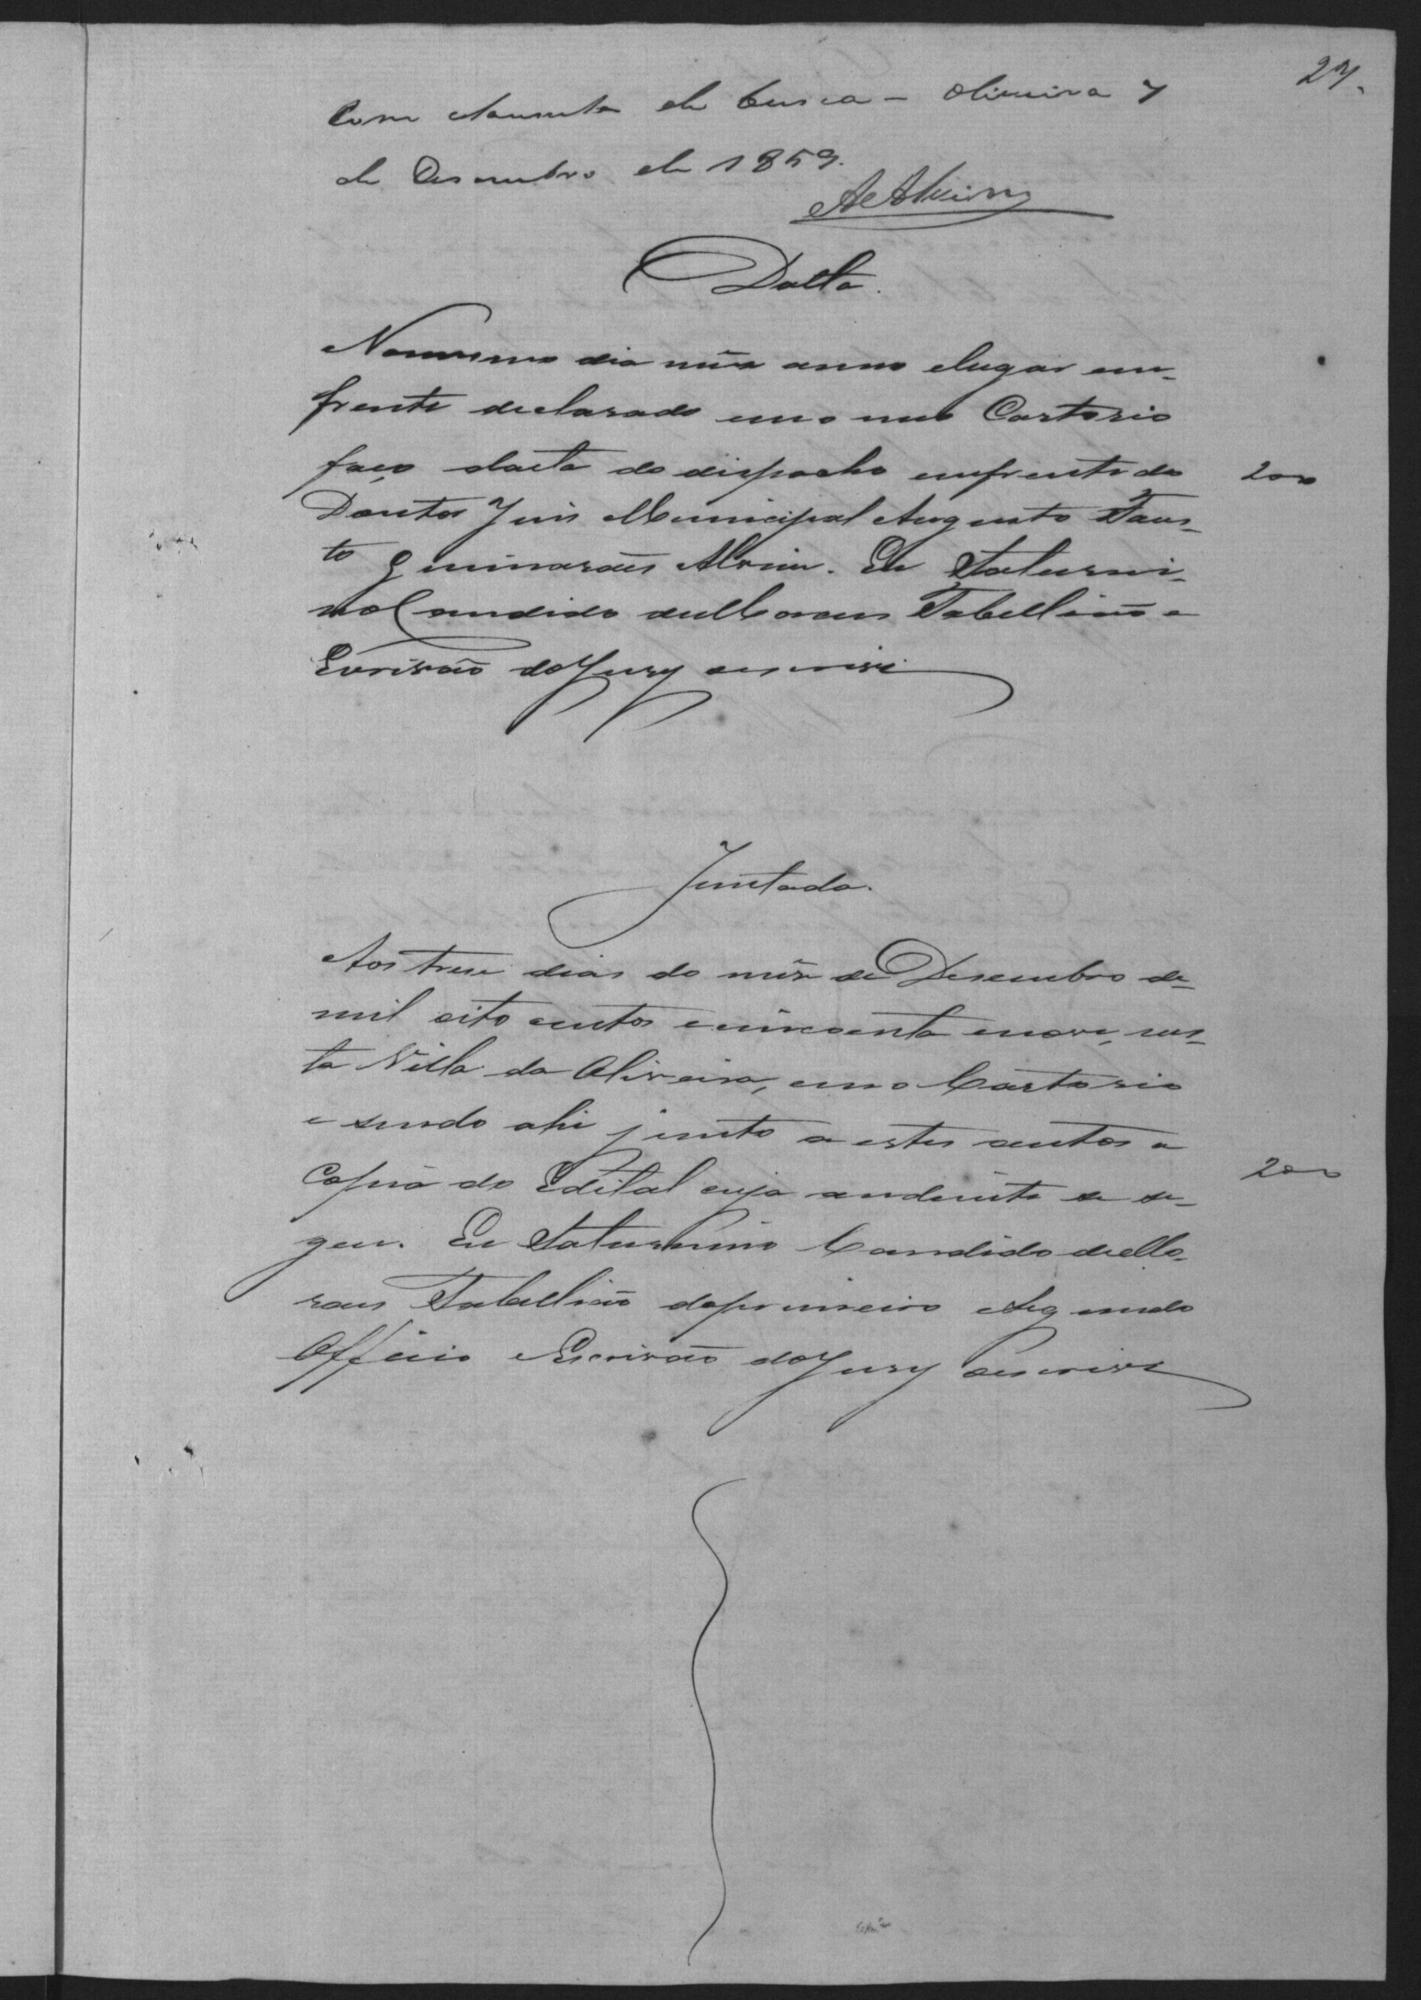 27.
Com de cusca - Oliveira 7
de Desembro de 1859.
AAlvim
Datta.
Nomesmo dia mês anno elugar em-
frente declarado emo meu Cartorio
faço dacta do dispacho emfrente do
200
Doutor Juis Municipal Augusto Faus-
to Guimarães Alvim. Eu Saturni-
no Candido deMoraes Tabellião e
Escrivão doJury escrevi
Juntada.
Aos trese dias do mês de Desembro de
mil oito centos e cincoenta enove, nes-
ta Villa da Oliveira, emo Cartorio
e sendo ahi junto a estes autos a
Copia do Edital cujo andeante se se-
200
gue. Eu Saturnino Candido deMo-
raes Tabellião doprimeiro eSegundo
Officio eEscrivão doJury escrevi